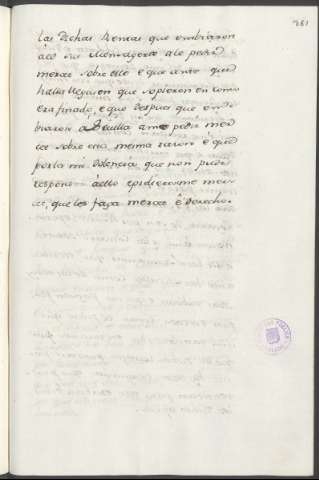 281
las Dichas Rentas que embiaron
acá su Mensagero alo pedir
merced sobre ello e que ante que
halla llegasen que sopieron en como
era finado, e que despues que em
biaron a Sevilla ame pedir mer
ced sobre esta mesma razon e que
por la mi Dolencia que non pude
responder aello epidieronme mer
ced, que les faga merced e Derecho.